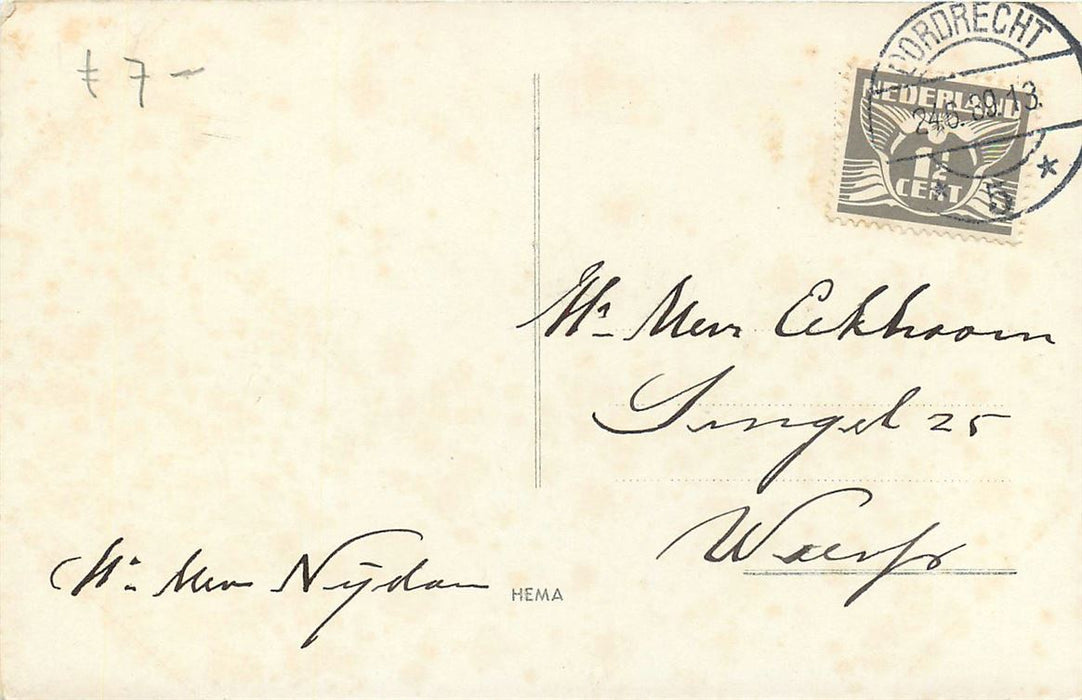 ƚ 7 –
DORDRECHT
24.6.39.13.
5
NEDERLAND
1½
CENT
Hr Mevr Eekhoorn
Singel 25
Hr. Mevr Nijdam
HEMA